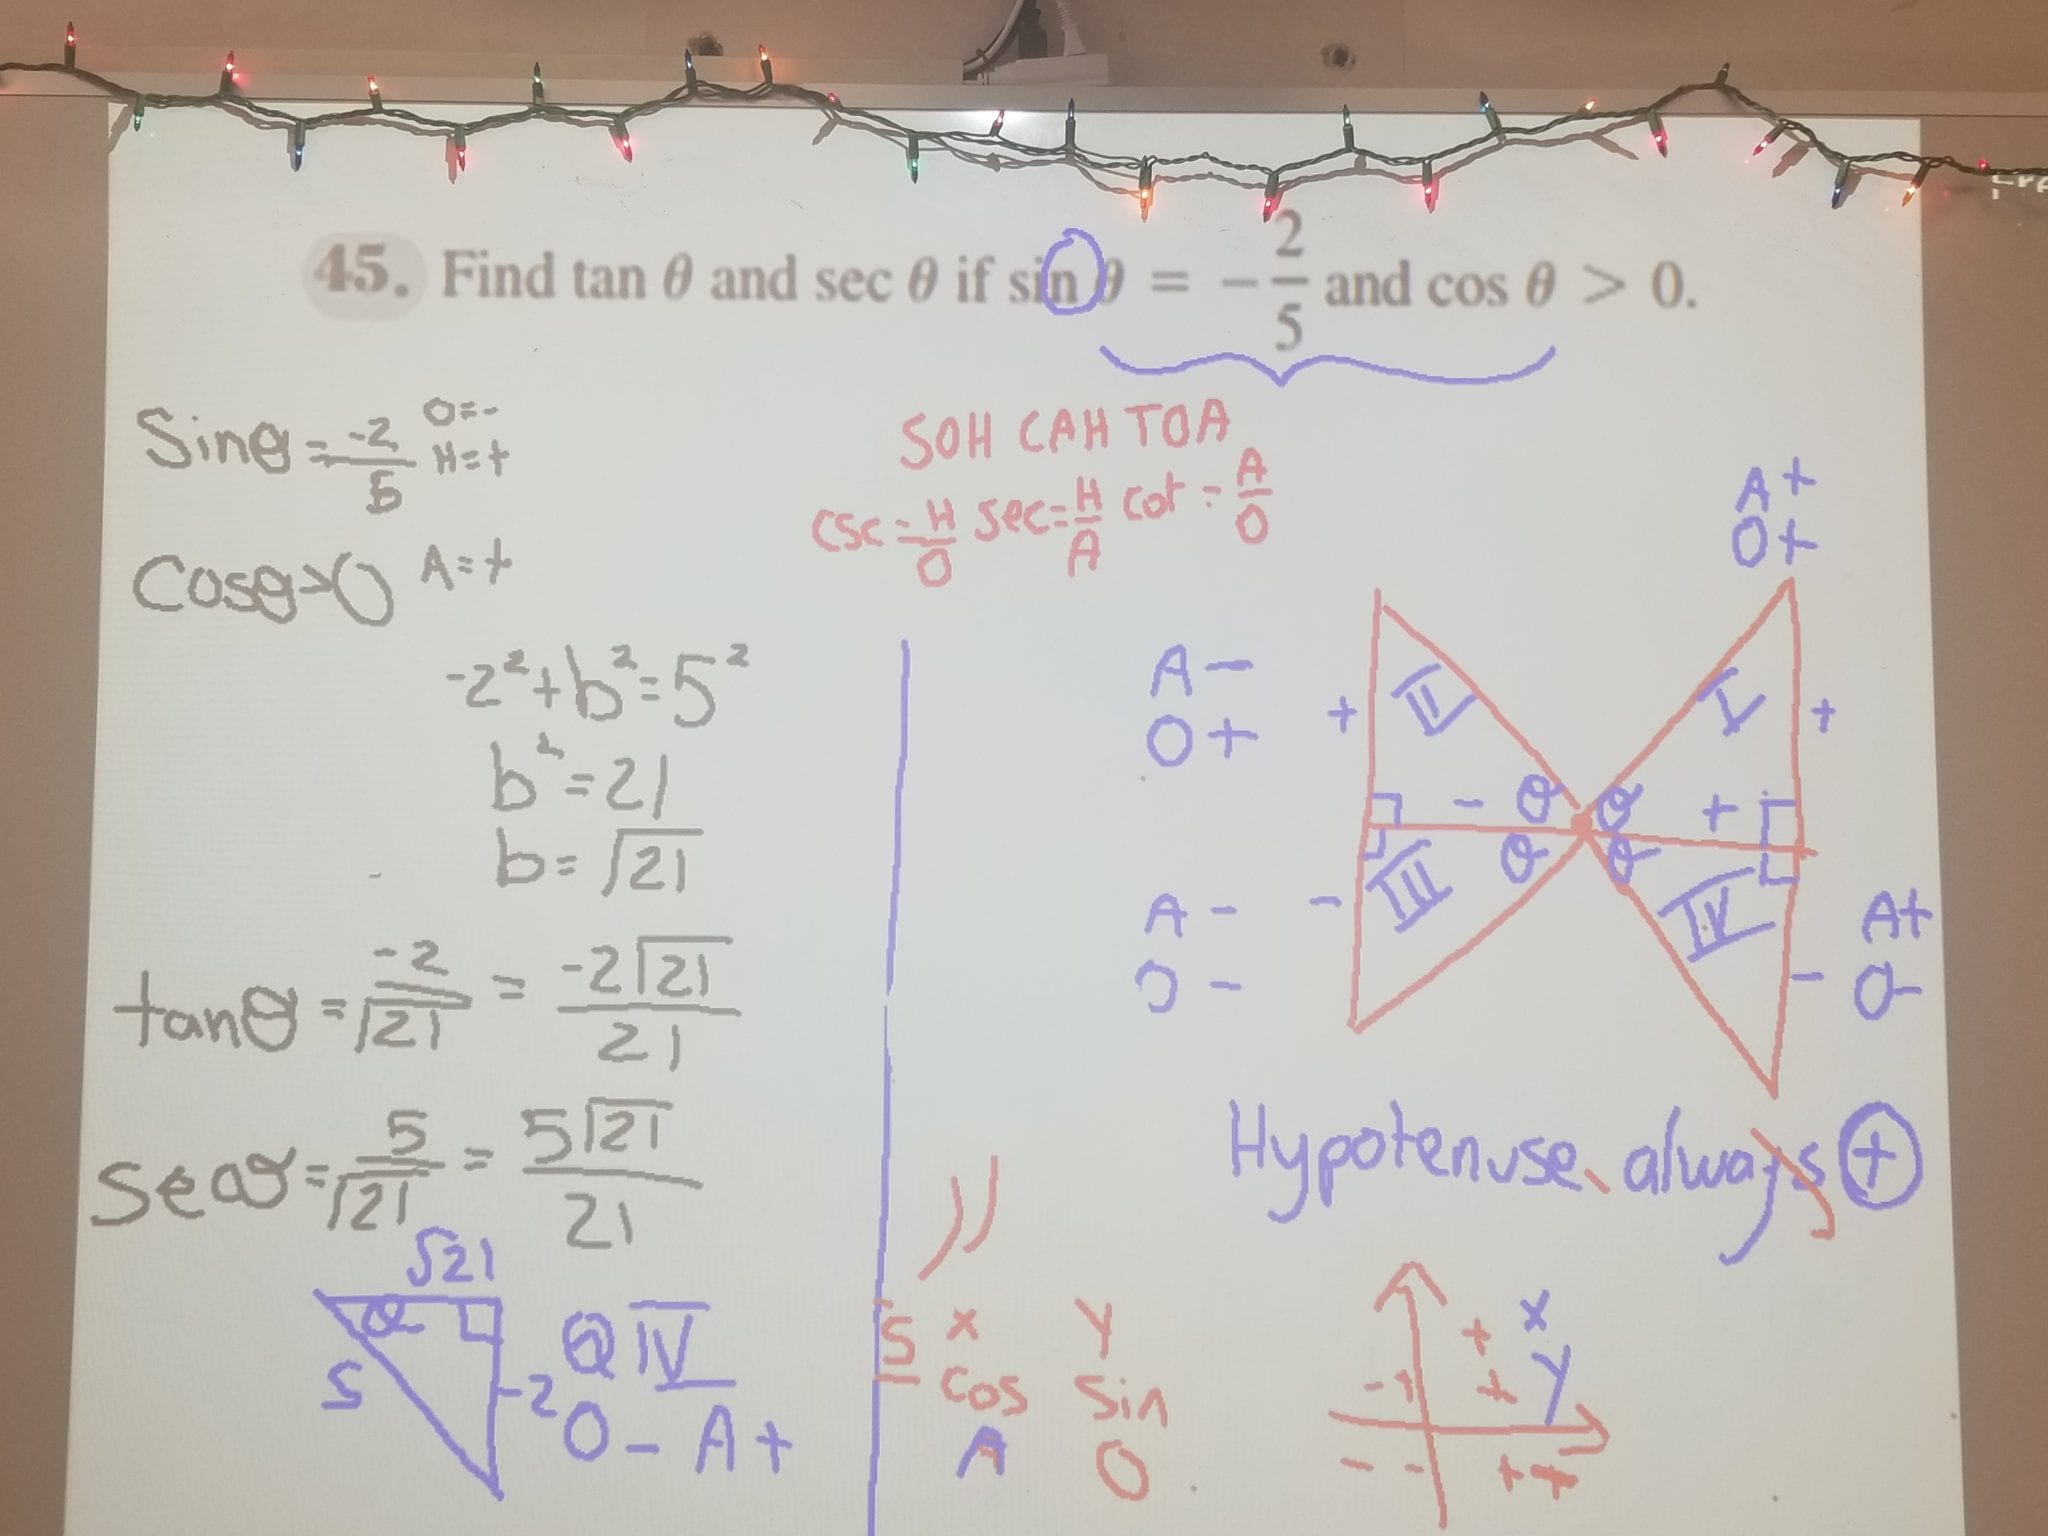 45. Find tan θ and sec θ if sin θ = -2/5 and cos θ > 0.
Sinθ = -2/5 O=- H=+
Cosθ>0 A=+
-2² + b² = 5²
b² = 21
b = √21
tanθ = -2/√21 = -2√21/21
= 5/√21 = 5√21/21
√21
θ
5
-2
Q IV
O - A +
SOH CAH TOA
csc = H/O sec = H/A cot = A/O
A +
O +
A -
O +
+ II I +
- θ θ +
θ θ
A -
O -
- III IV -
A+
O-
Hypotenuse always +
5 x y
cos sin
A O
+ x
+ y
- -
+ +